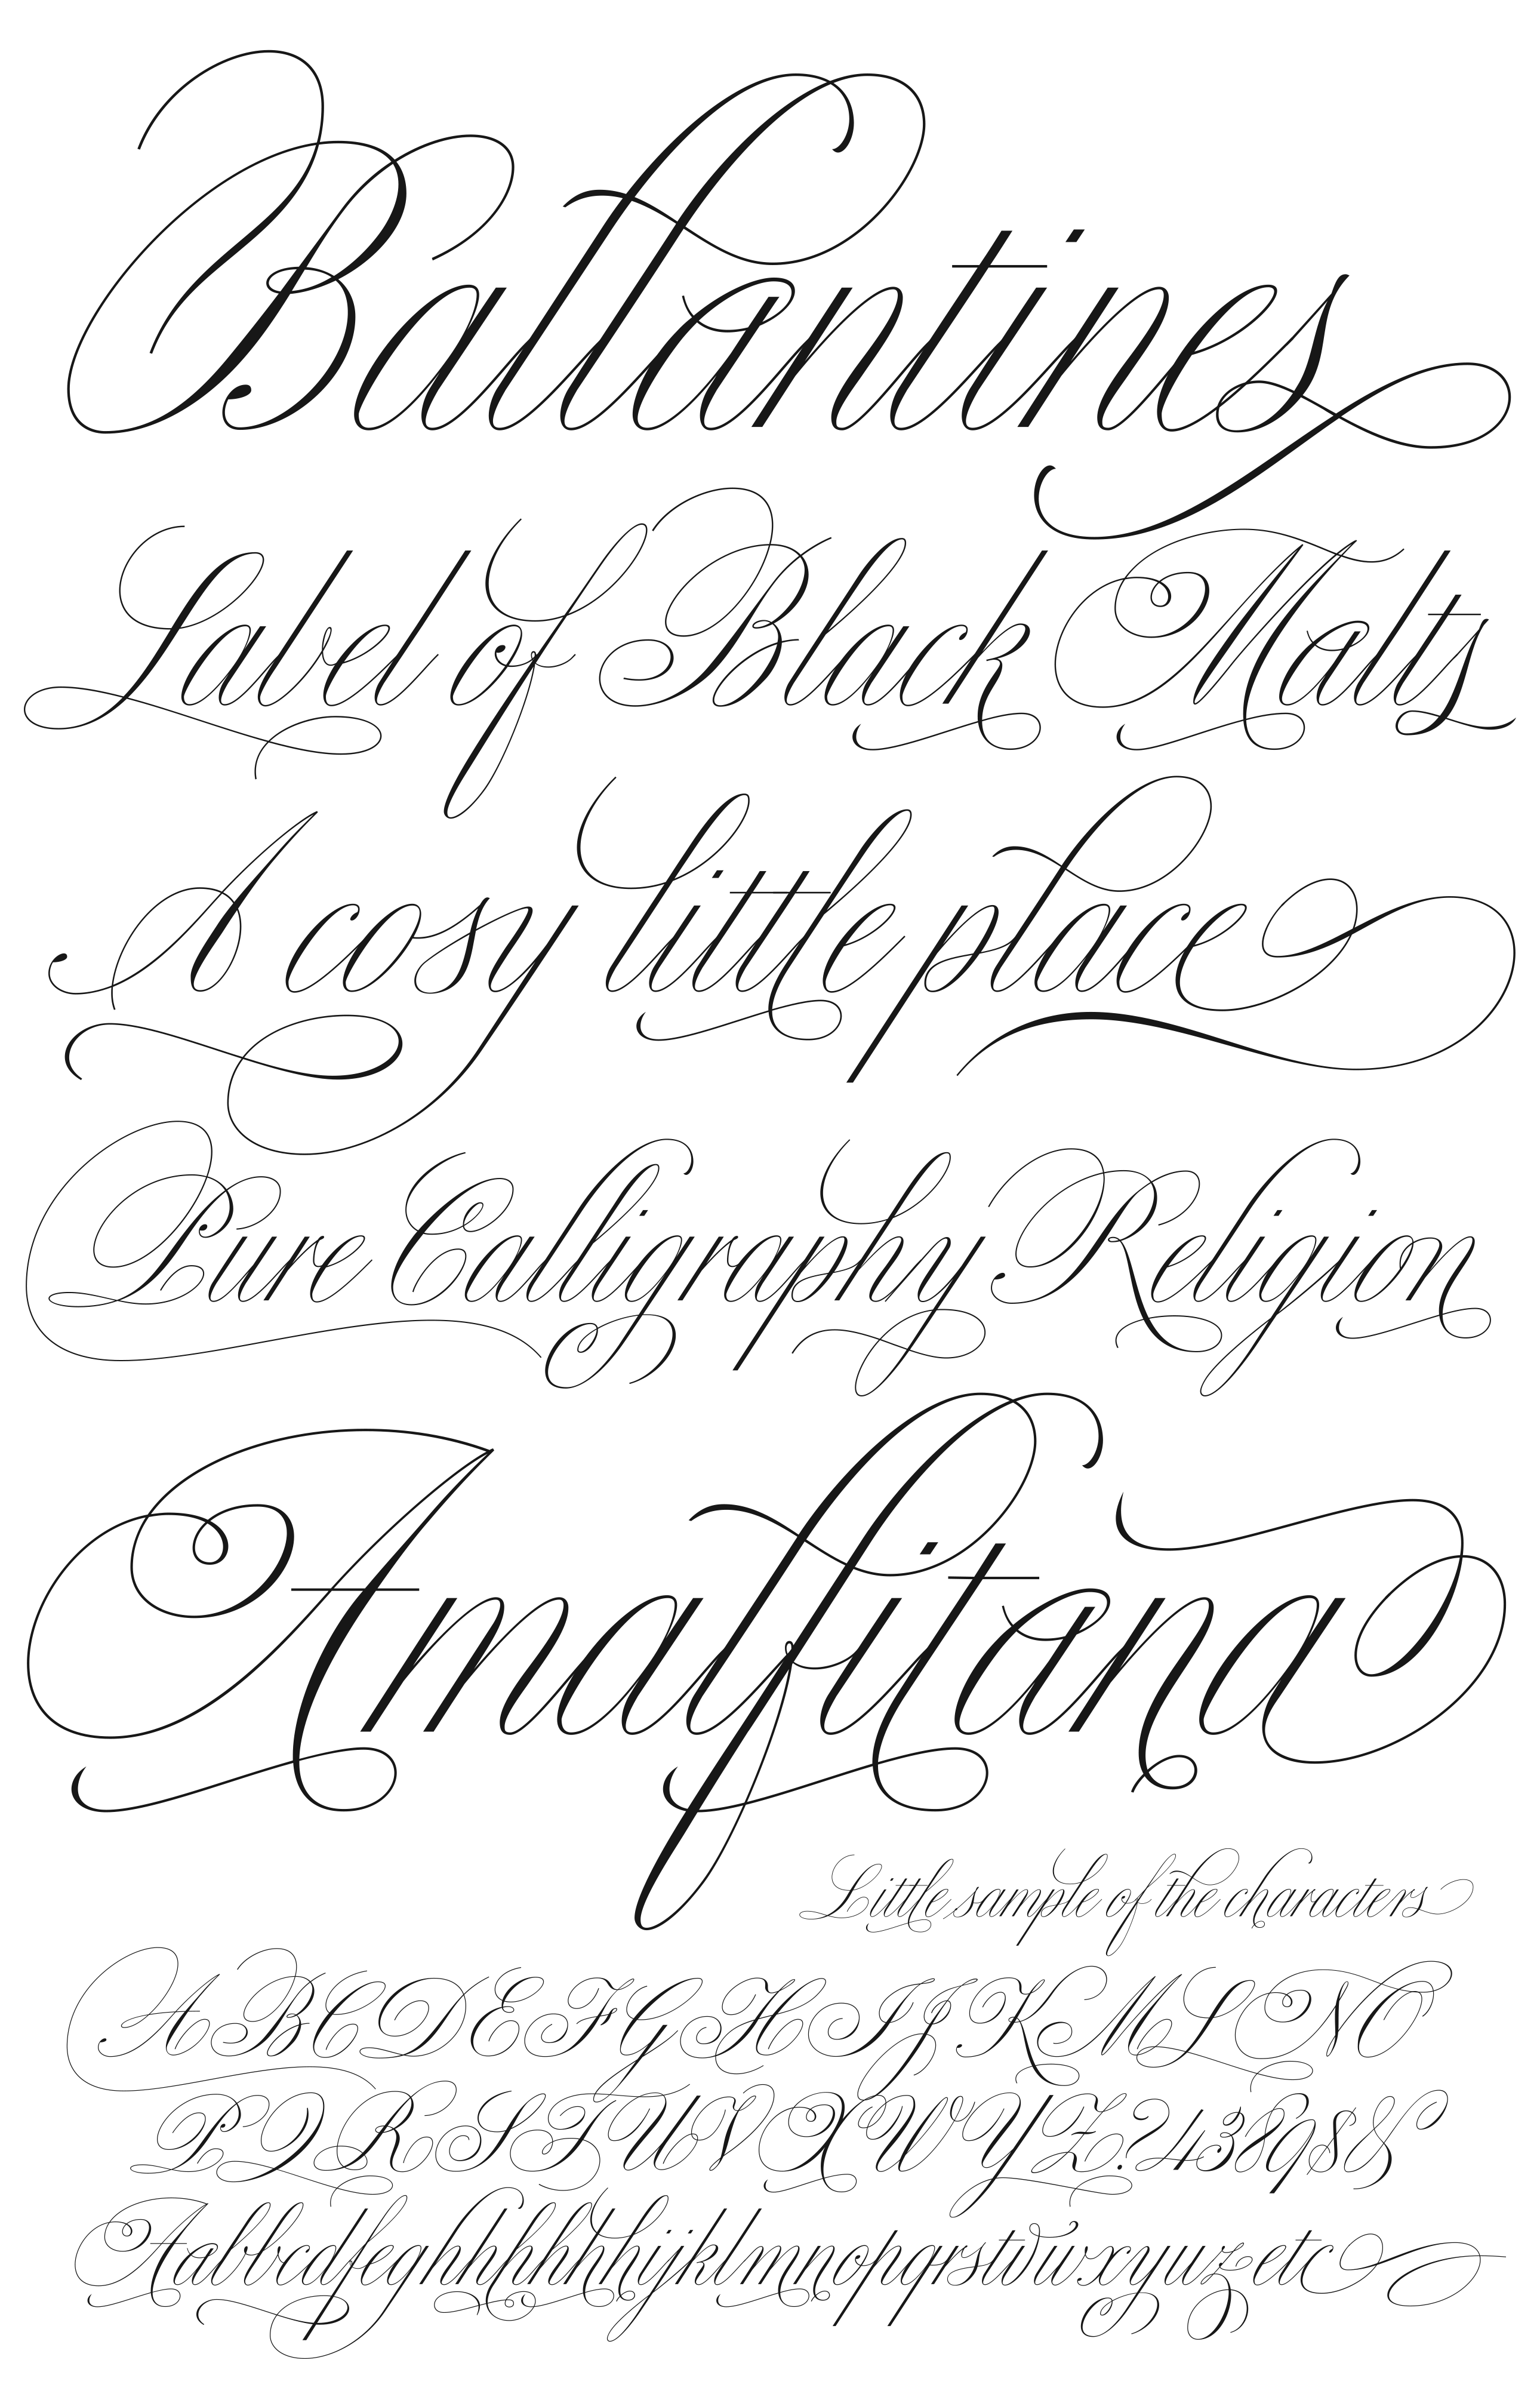 Ballantines
Label of Black Malts
A cosy little place
Pure Calligraphy Religion
Amalfitana
Little sample of the characters
ABCDEFGHIJKMLNO
PQRSTUVXWYZ?43898&
Aabbcdfeghhhhhhijklmnopqrstvwxyyuzetc